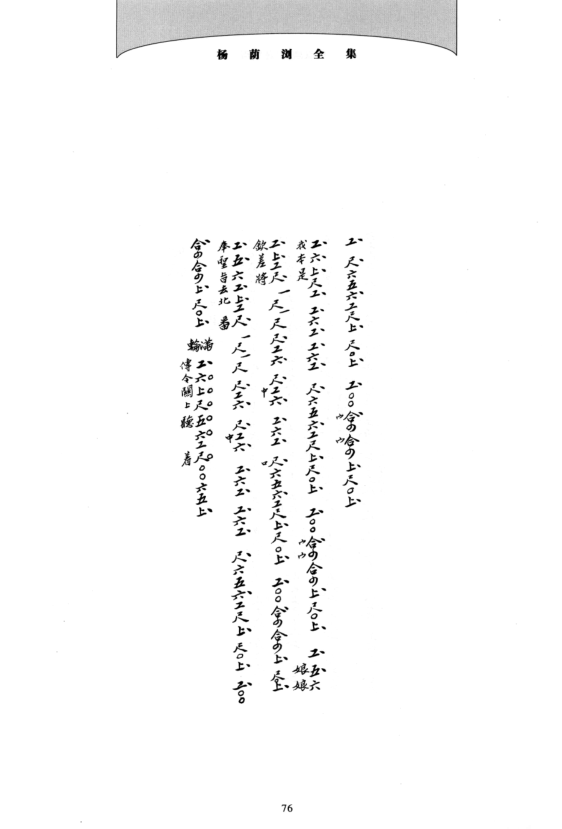 杨荫浏全集
工、尺六五六工尺上、尺〇上、工〇〇合四合四上、尺〇上、
工、六上尺工、工六工、工六工、尺六五六工尺上、尺〇上、工〇〇合四合四上、尺〇上、工、五六
我本是 娘娘
工、上工尺、一尺一尺尺工六、尺工六、工六工、尺六五六工尺上、尺〇上、工〇〇合四合四上、尺上、
欽差將 中 口
工、五六工上工尺、一尺一尺、尺工六、尺工六、工六工、工六工、尺六五六工尺上、尺〇上、工〇〇
奉聖旨去北番 中
合四合四上、尺〇上、
工、六上尺五六工尺〇〇六五上、
傳令關上聽着
76